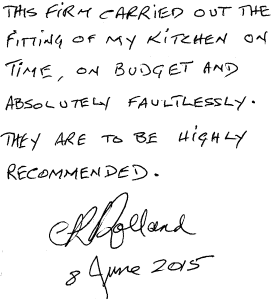 THIS FIRM CARRIED OUT THE
FITTING OF MY KITCHEN ON
TIME, ON BUDGET AND
ABSOLUTELY FAULTLESSLY.
THEY ARE TO BE HIGHLY
RECOMMENDED.
8 June 2015